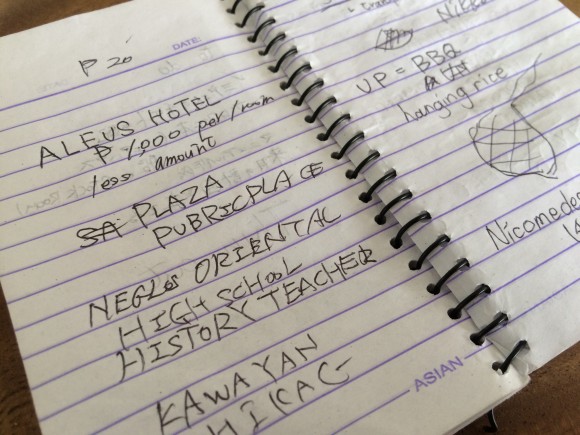 DATE:
₱ 20
ALEUS HOTEL
₱ 1,000 per/room
less amount
SA PLAZA
PUBRICPLACE
NEGLOS ORIENTAL
HIGH SCHOOL
HISTORY TEACHER
KAWAYAN
HIKAG
ASIAN
UP = BBQ
hanging rice